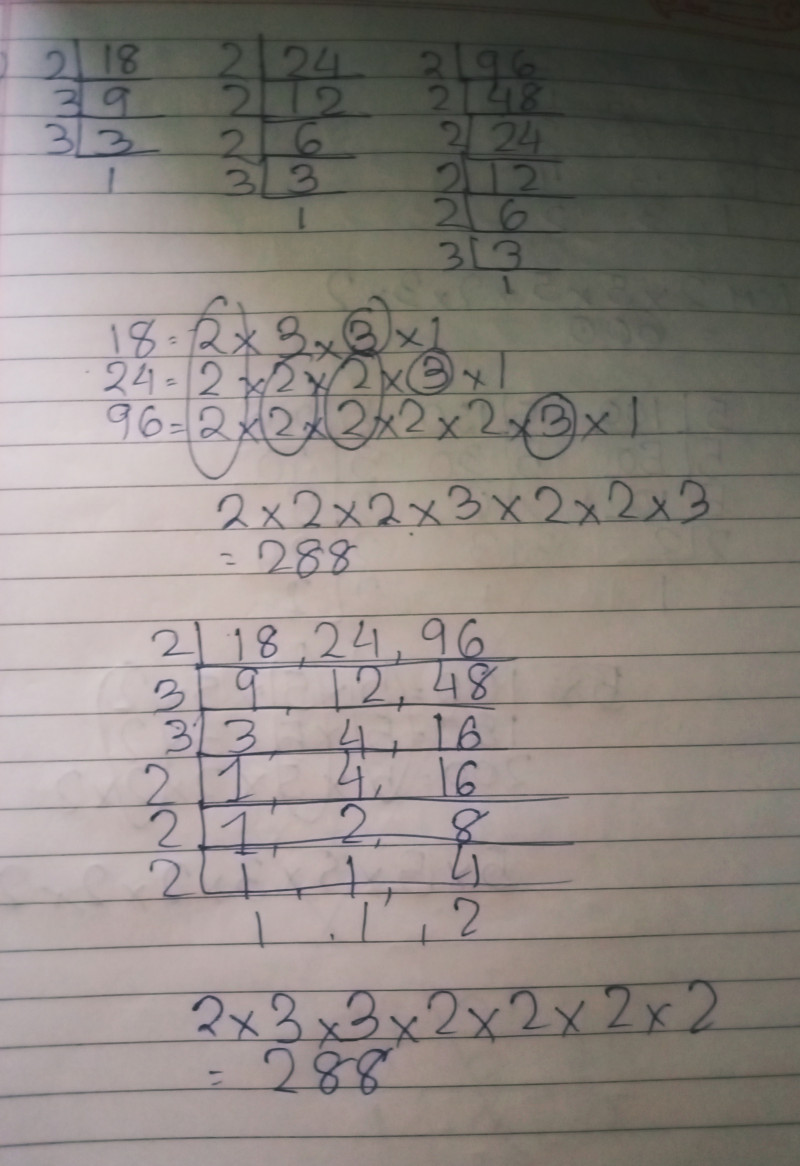 2 | 18  2 | 24  2 | 96
3 | 9  2 | 12  2 | 48
3 | 3  2 | 6  2 | 24
1  3 | 3  2 | 12
1  2 | 6
3 | 3
1
18 = 2 × 3 × 3 × 1
24 = 2 × 2 × 2 × 3 × 1
96 = 2 × 2 × 2 × 2 × 2 × 3 × 1
2 × 2 × 2 × 3 × 2 × 2 × 3
= 288
2 | 18, 24, 96
3 | 9, 12, 48
3 | 3, 4, 16
2 | 1, 4, 16
2 | 1, 2, 8
2 | 1, 1, 4
1, 1, 2
2 × 3 × 3 × 2 × 2 × 2 × 2
= 288